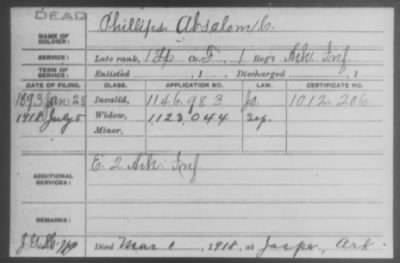 DEAD
NAME OF SOLDIER: Phillips Absalom C.
SERVICE: Late rank, Co. F, 1 Reg't Ark Inf
TERM OF SERVICE: Enlisted , 1 , Discharged , 1
DATE OF FILING. CLASS. APPLICATION NO. LAW. CERTIFICATE NO.
1893 Jan 28 Invalid, 1146.983 1012.206
1918 July 5 Widow, 1123.044
Minor,
ADDITIONAL SERVICES: E. 2 Ark Inf
REMARKS:
Died Mar , 1918, at Jasper, Ark.